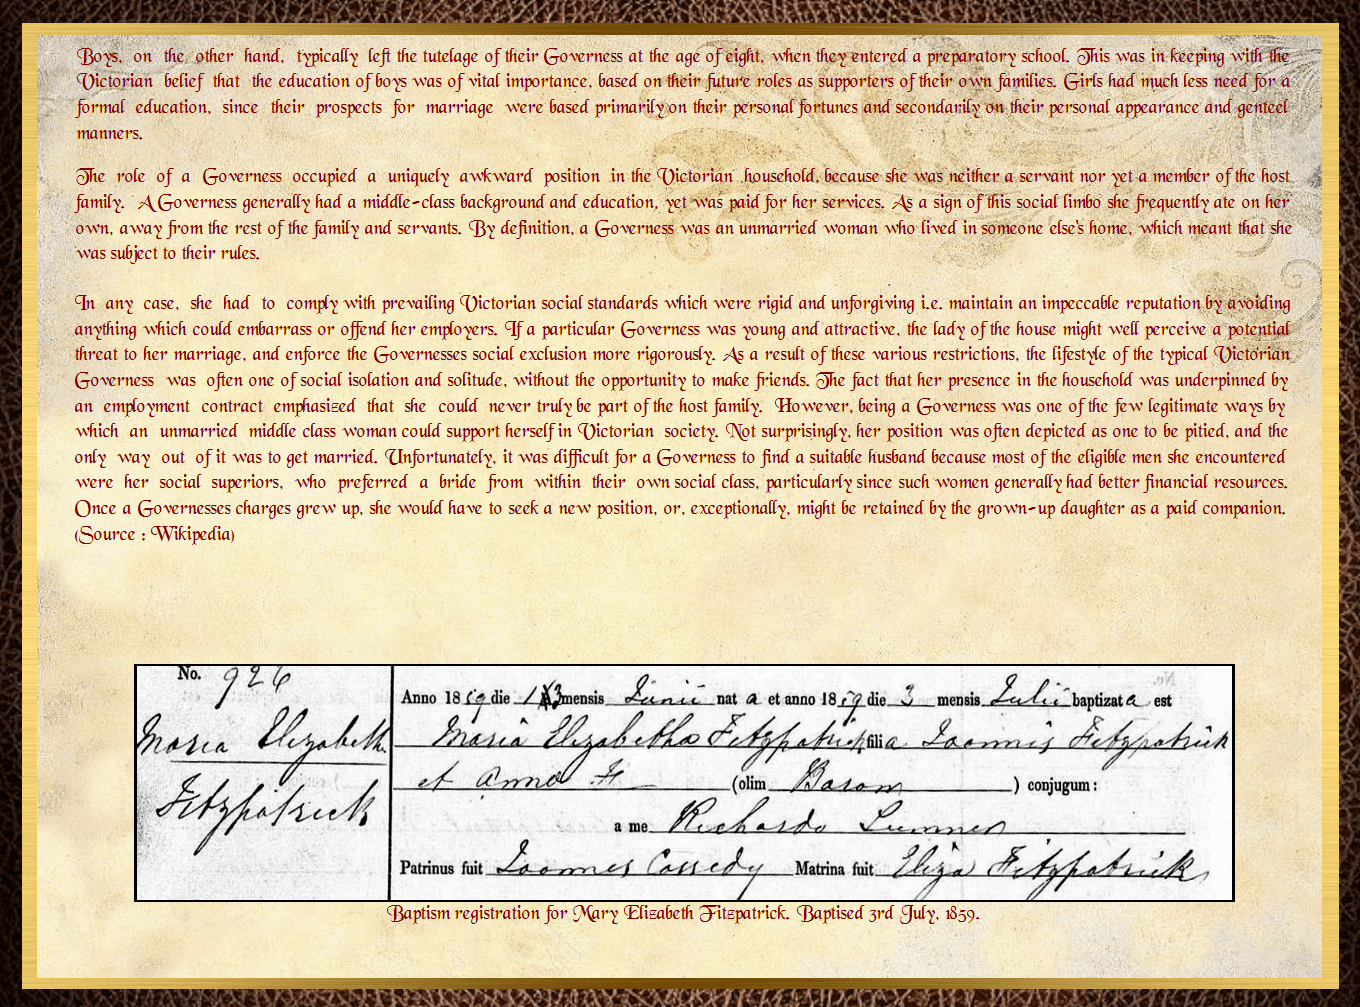 Boys, on the other hand, typically left the tutelage of their Governess at the age of eight, when they entered a preparatory school. This was in keeping with the
Victorian belief that the education of boys was of vital importance, based on their future roles as supporters of their own families. Girls had much less need for a
formal education, since their prospects for marriage were based primarily on their personal fortunes and secondarily on their personal appearance and genteel
manners.
The role of a Governess occupied a uniquely awkward position in the Victorian household, because she was neither a servant nor yet a member of the host
family. A Governess generally had a middle-class background and education, yet was paid for her services. As a sign of this social limbo she frequently ate on her
own, away from the rest of the family and servants. By definition, a Governess was an unmarried woman who lived in someone else's home, which meant that she
was subject to their rules.
In any case, she had to comply with prevailing Victorian social standards which were rigid and unforgiving i.e. maintain an impeccable reputation by avoiding
anything which could embarrass or offend her employers. If a particular Governess was young and attractive, the lady of the house might well perceive a potential
threat to her marriage, and enforce the Governesses social exclusion more rigorously. As a result of these various restrictions, the lifestyle of the typical Victorian
Governess was often one of social isolation and solitude, without the opportunity to make friends. The fact that her presence in the household was underpinned by
an employment contract emphasized that she could never truly be part of the host family. However, being a Governess was one of the few legitimate ways by
which an unmarried middle class woman could support herself in Victorian society. Not surprisingly, her position was often depicted as one to be pitied, and the
only way out of it was to get married. Unfortunately, it was difficult for a Governess to find a suitable husband because most of the eligible men she encountered
were her social superiors, who preferred a bride from within their own social class, particularly since such women generally had better financial resources.
Once a Governesses charges grew up, she would have to seek a new position, or, exceptionally, might be retained by the grown-up daughter as a paid companion.
(Source : Wikipedia)
No. 926
Maria Elizabeth
Fitzpatrick
Anno 1859 die 13 mensis Junii nat a et anno 1859 die 3 mensis Julii baptizat a est
Maria Elizabetha Fitzpatrick filia Joannis Fitzpatrick
et Anna F (olim ) conjugum :
a me Richardo
Patrinus fuit Joannes Cassedy Matrina fuit Eliza Fitzpatrick
Baptism registration for Mary Elizabeth Fitzpatrick. Baptised 3rd July, 1859.